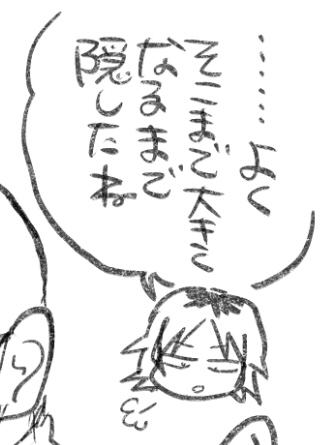 ……よく
そこまで大きく
なるまで
隠したね